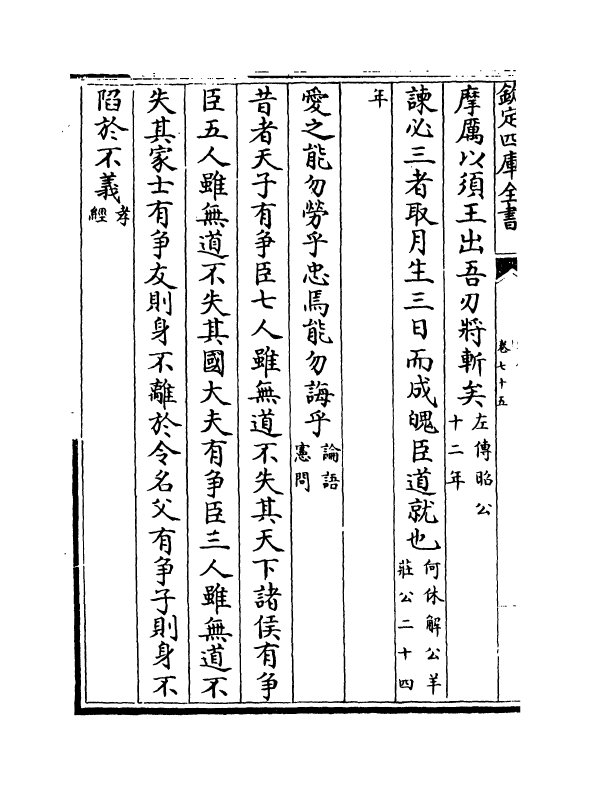 欽定四庫全書
卷七十五
摩厲以須王出吾刃將斬矣左傳昭公十二年
諫必三者取月生三日而成魄臣道就也何休解公羊莊公二十四
年
愛之能勿勞乎忠焉能勿誨乎論語憲問
昔者天子有争臣七人雖無道不失其天下諸侯有争
臣五人雖無道不失其國大夫有争臣三人雖無道不
失其家士有争友則身不離於令名父有争子則身不
陷於不義孝經